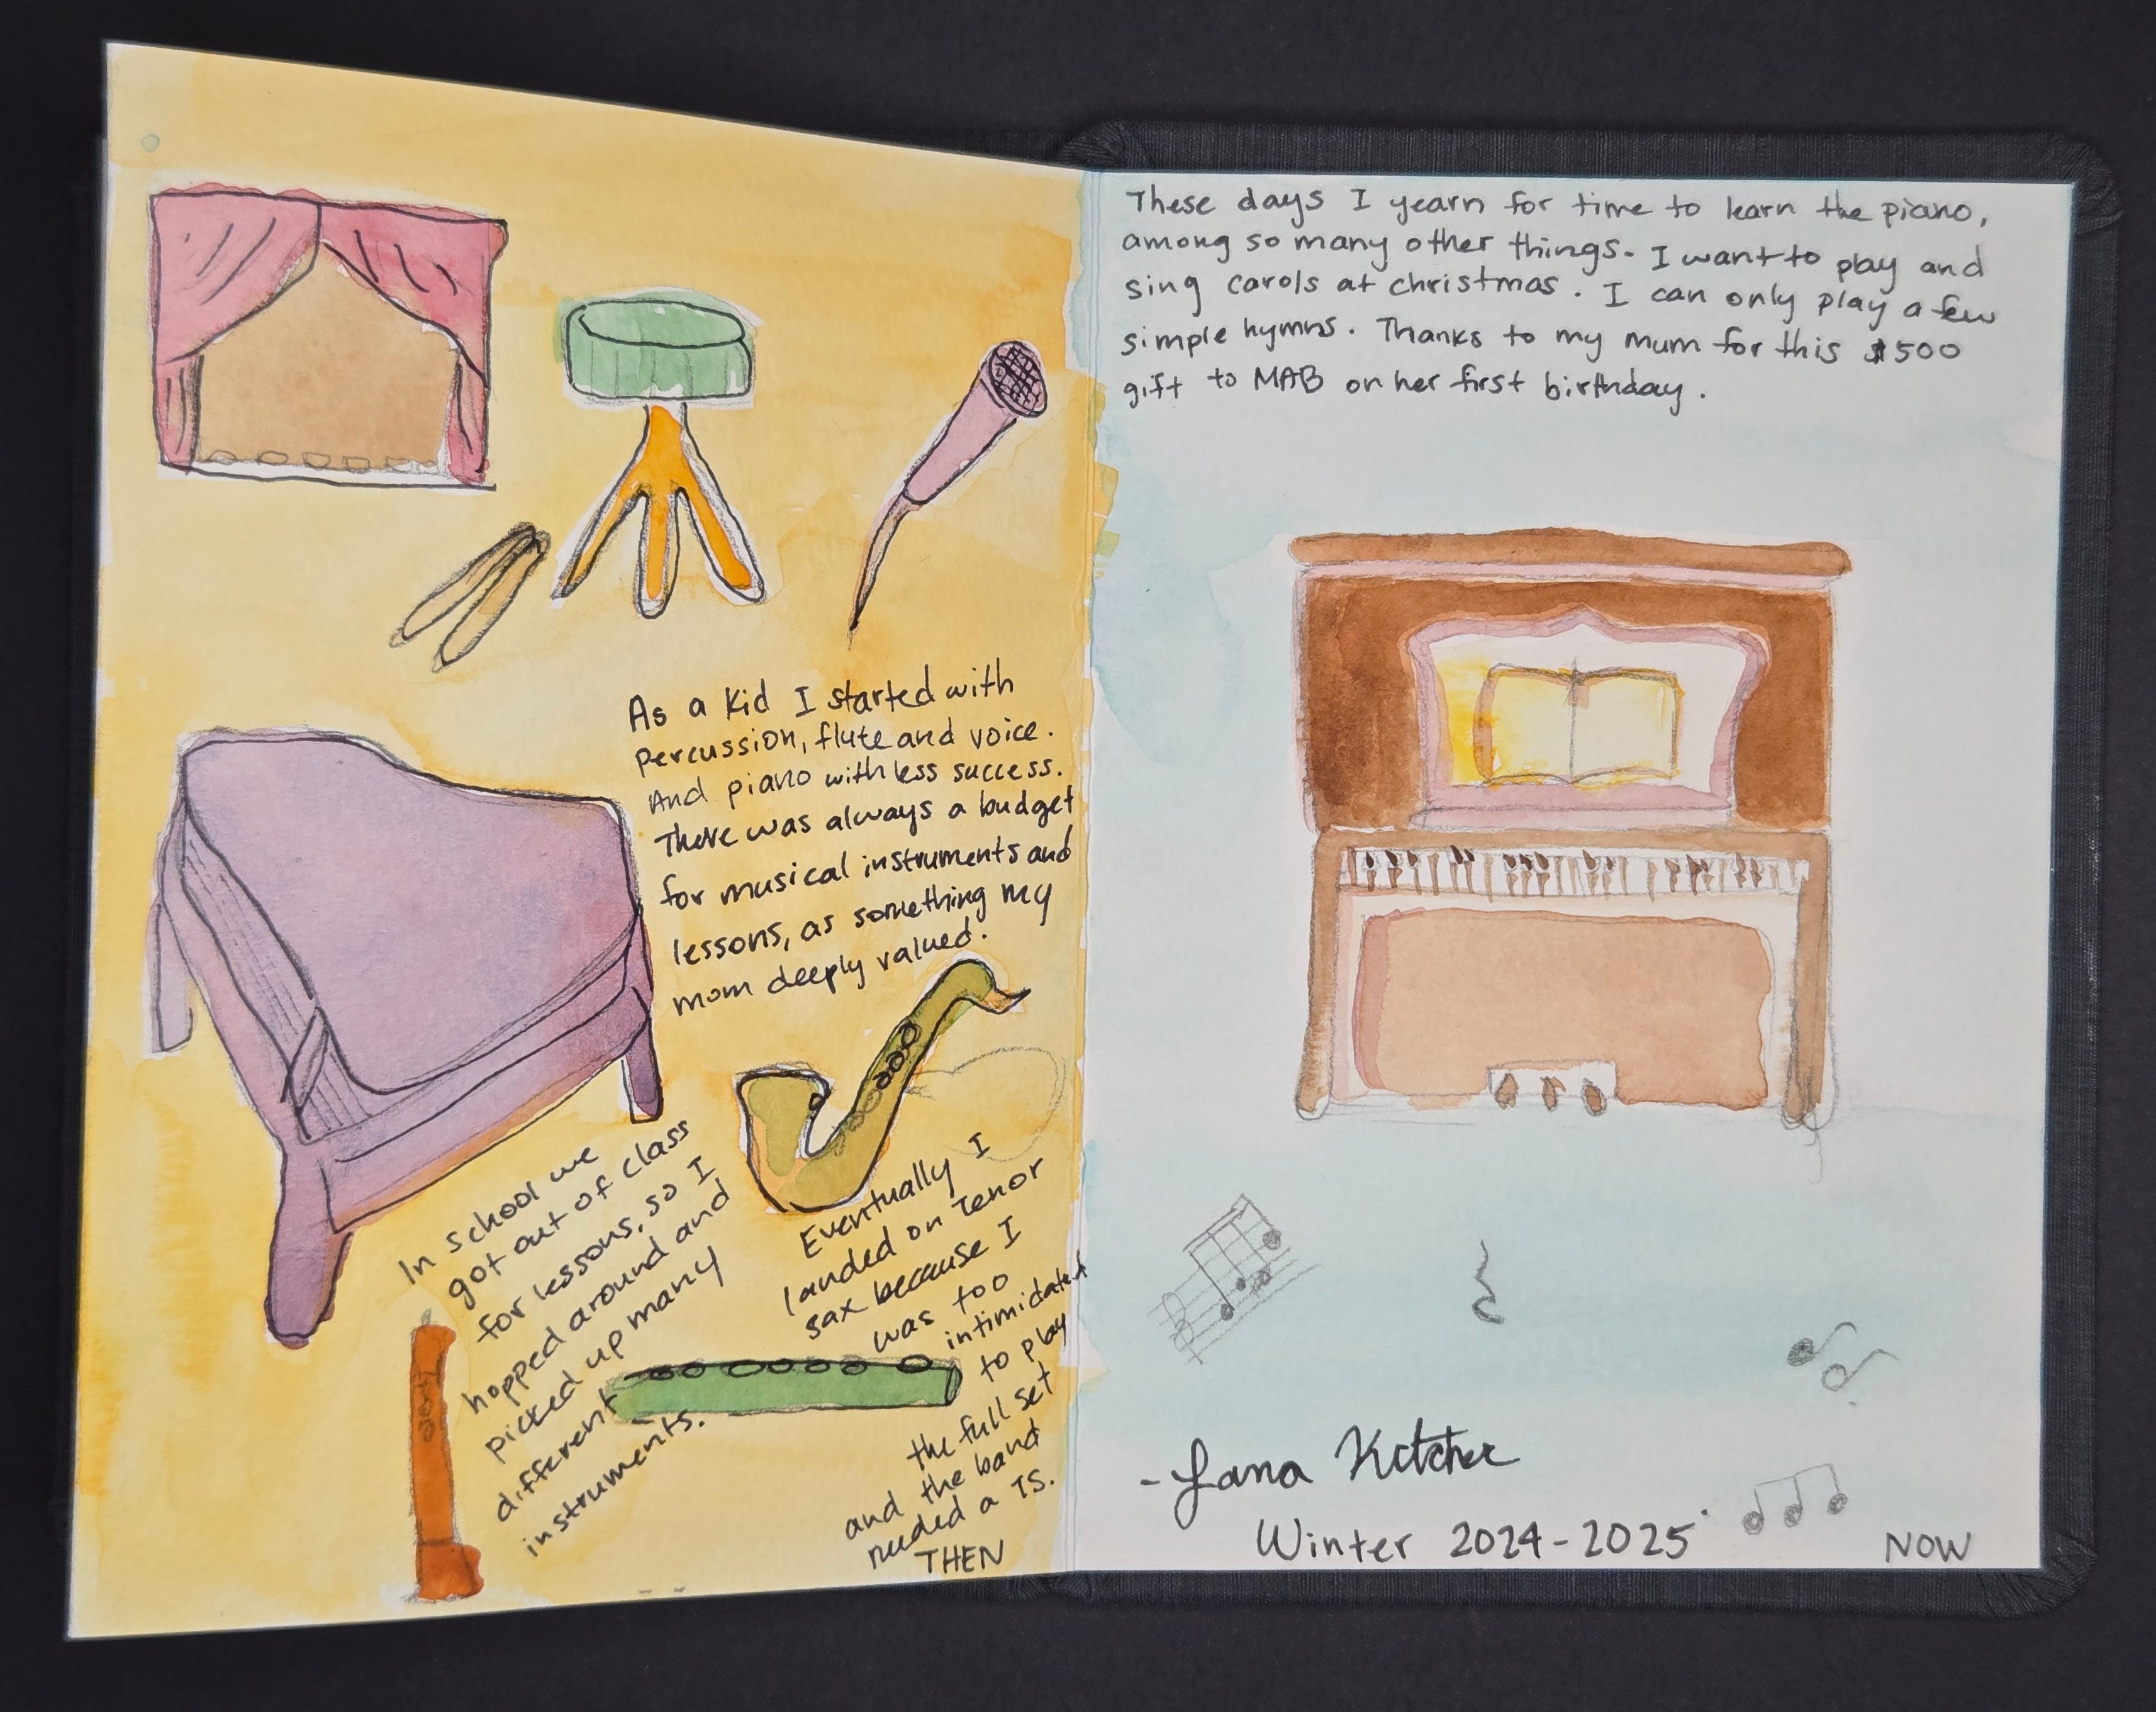 As a kid I started with
percussion, flute and voice.
And piano with less success.
There was always a budget
for musical instruments and
lessons, as something my
mom deeply valued.
In school we
got out of class
for lessons, so I
hopped around and
picked up many
different
instruments.
Eventually I
landed on Tenor
sax because I
was too
intimidated
to play
the full set
and the band
needed a TS.
THEN
These days I yearn for time to learn the piano,
among so many other things. I want to play and
sing carols at christmas. I can only play a few
simple hymns. Thanks to my mum for this $500
gift to MAB on her first birthday.
-Lana Kitcher
Winter 2024-2025
NOW